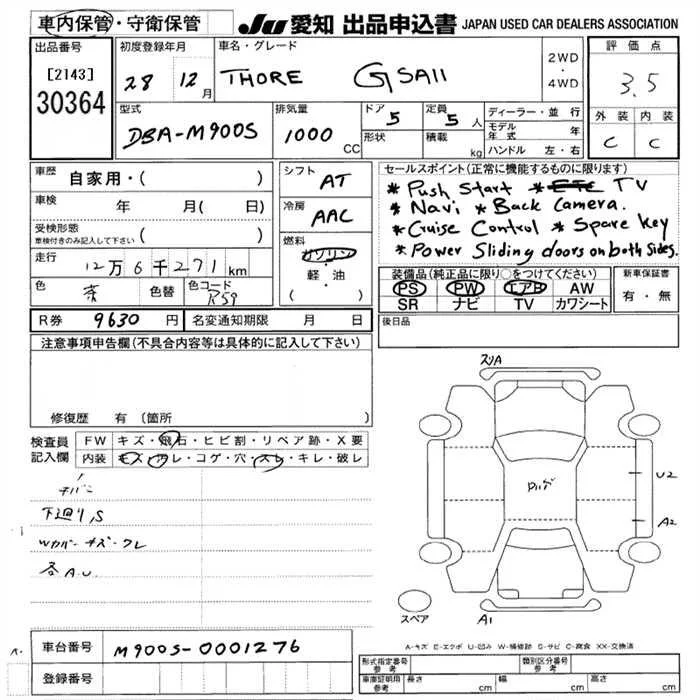 車内保管・守衛保管
JU 愛知 出品申込書 JAPAN USED CAR DEALERS ASSOCIATION
出品番号
[2143]
30364
初度登録年月
28 12月
車名・グレード
THORE GSAII
2WD
・
4WD
評価点
3.5
外装 内装
C C
型式
DBA-M900S
排気量
1000 CC
ドア
5
形状
定員
5人
積載
kg
ディーラー・並行
モデル年式 年
ハンドル 左・右
車歴
自家用・( )
車検 年 月( 日)
受検形態
車検付きのみ記入して下さい ( )
走行
12万6千271km
色 茶 色替 色コード R59
シフト
AT
冷房
AAC
燃料
ガソリン
・
軽・油
( )
セールスポイント(正常に機能するものに限ります)
* Push Start * ETC TV
* Navi * Back Camera.
* Cruise Control * Spare Key
* Power Sliding doors on both sides.
装備品(純正品に限り○をつけてください)
PS PW エアB AW
SR ナビ TV カワシート
新車保証書
有・無
R券 9630円 名変通知期限 月 日
後日品
注意事項申告欄(不具合内容等は具体的に記入して下さい)
修復歴 有 〔箇所
検査員
記入欄
FW キズ・飛石・ヒビ割・リペア跡・X要
内装 キズ・汚レ・コゲ・穴・スレ・キレ・破レ
下廻り,S
Wカバーキズ・ワレ
各A.U
スリA
U2
A2
スペア
A1
A-キズ E-エクボ U-凹み W-補修跡 S-サビ C-腐食 XX-交換済
車台番号 M900S-0001276
登録番号
形式指定番号
参考
類別区分番号
参考
車庫証明用
参考
長さ cm 幅 cm 高さ cm